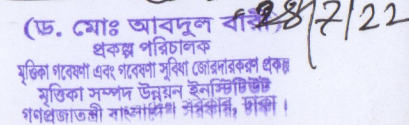 (ড. মোঃ আবদুল বারী) 28/7/22
প্রকল্প পরিচালক
মৃত্তিকা গবেষণা এবং গবেষণা সুবিধা জোরদারকরণ প্রকল্প
মৃত্তিকা সম্পদ উন্নয়ন ইনস্টিটিউট
গণপ্রজাতন্ত্রী বাংলাদেশ সরকার, ঢাকা।